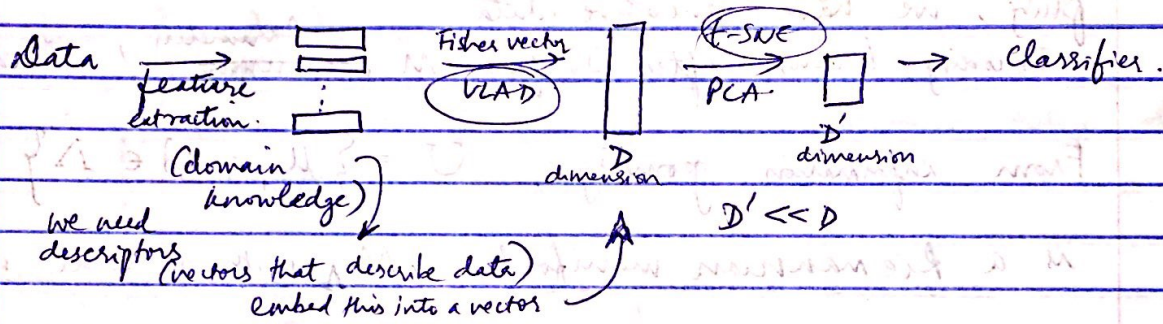 Data
feature
extraction.
Fisher vector
VLAD
t-SNE
PCA
Classifier.
D
dimension
D'
dimension
(domain
knowledge)
D' << D
we need
descriptors
(vectors that describe data)
embed this into a vector